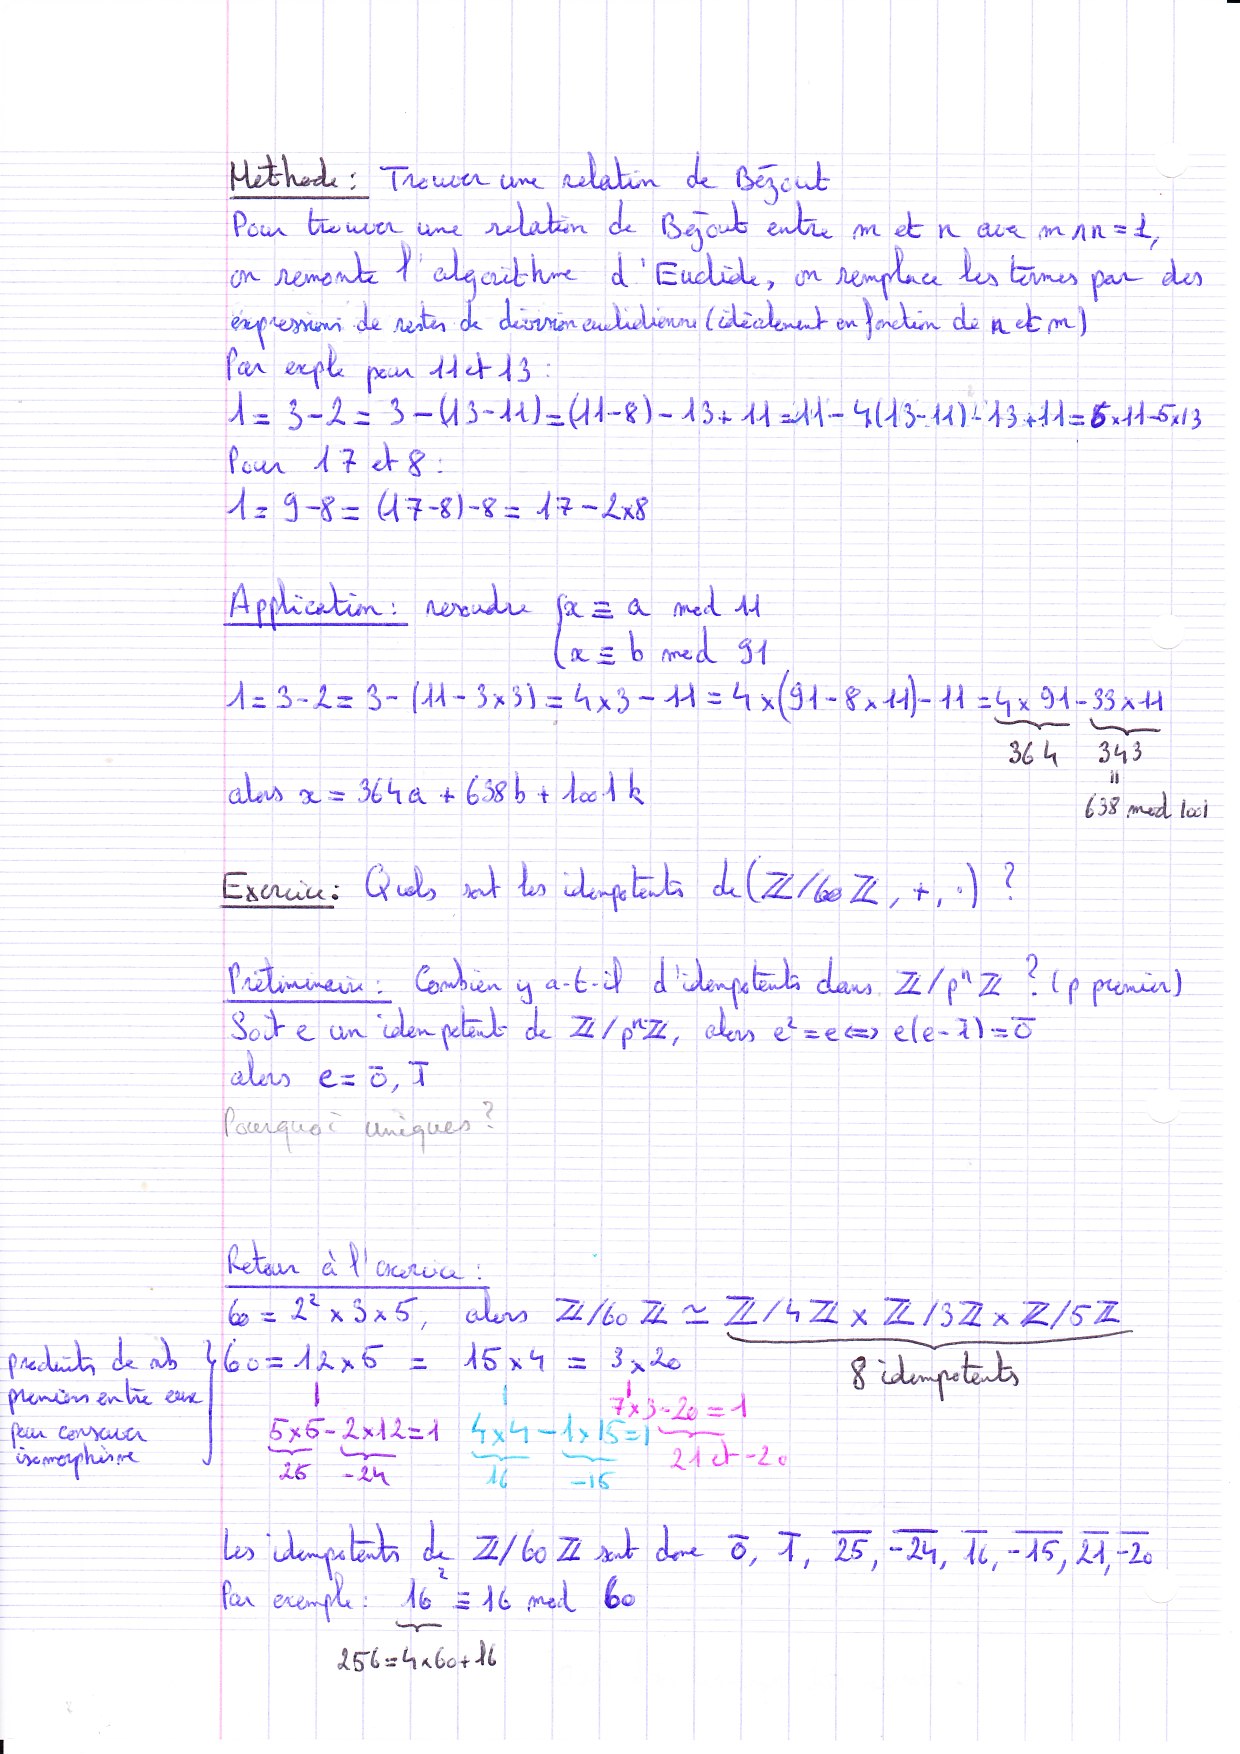 Méthode : Trouver une relation de Bézout
Pour trouver une relation de Bézout entre m et n avec m ∧ n = 1,
on remonte l'algorithme d'Euclide, on remplace les termes par des
expressions de restes de division euclidienne (idéalement en fonction de n et m)
Par exple pour 11 et 13 :
1 = 3 - 2 = 3 - (13 - 11) = (11 - 8) - 13 + 11 = 11 - 4(13 - 11) - 13 + 11 = 6 × 11 - 5 × 13
Pour 17 et 8 :
1 = 9 - 8 = (17 - 8) - 8 = 17 - 2×8
Application : resoudre { x ≡ a mod 11
x ≡ b mod 91
1 = 3 - 2 = 3 - (11 - 3×3) = 4×3 - 11 = 4×(91 - 8×11) - 11 = 4×91 - 33×11
364 343
=
638 mod 1001
alors x = 364a + 638b + 1001k
Exercice : Quels sont les idempotents de (ℤ/60ℤ, +, ·) ?
Préliminaire : Combien y a-t-il d'idempotents dans ℤ/pⁿℤ ? (p premier)
Soit e un idempotent de ℤ/pⁿℤ, alors e² = e ⇔ e(e - 1̄) = 0̄
alors e = 0̄, 1̄
Pourquoi uniques ?
Retour à l'exercice :
60 = 2² × 3 × 5, alors ℤ/60ℤ ≃ ℤ/4ℤ × ℤ/3ℤ × ℤ/5ℤ
8 idempotents
produits de nb
premiers entre eux
pour conserver
isomorphisme
60 = 12×5 = 15×4 = 3×20
5×5 - 2×12 = 1 4×4 - 1×15 = 1 7×3 - 20 = 1
25 -24 16 -15 21 et -20
Les idempotents de ℤ/60ℤ sont donc 0̄, 1̄, 2̅5̅, -̅2̅4̅, 1̅6̅, -̅1̅5̅, 2̅1̅, -̅2̅0̅
Par exemple : 16² ≡ 16 mod 60
256 = 4×60 + 16